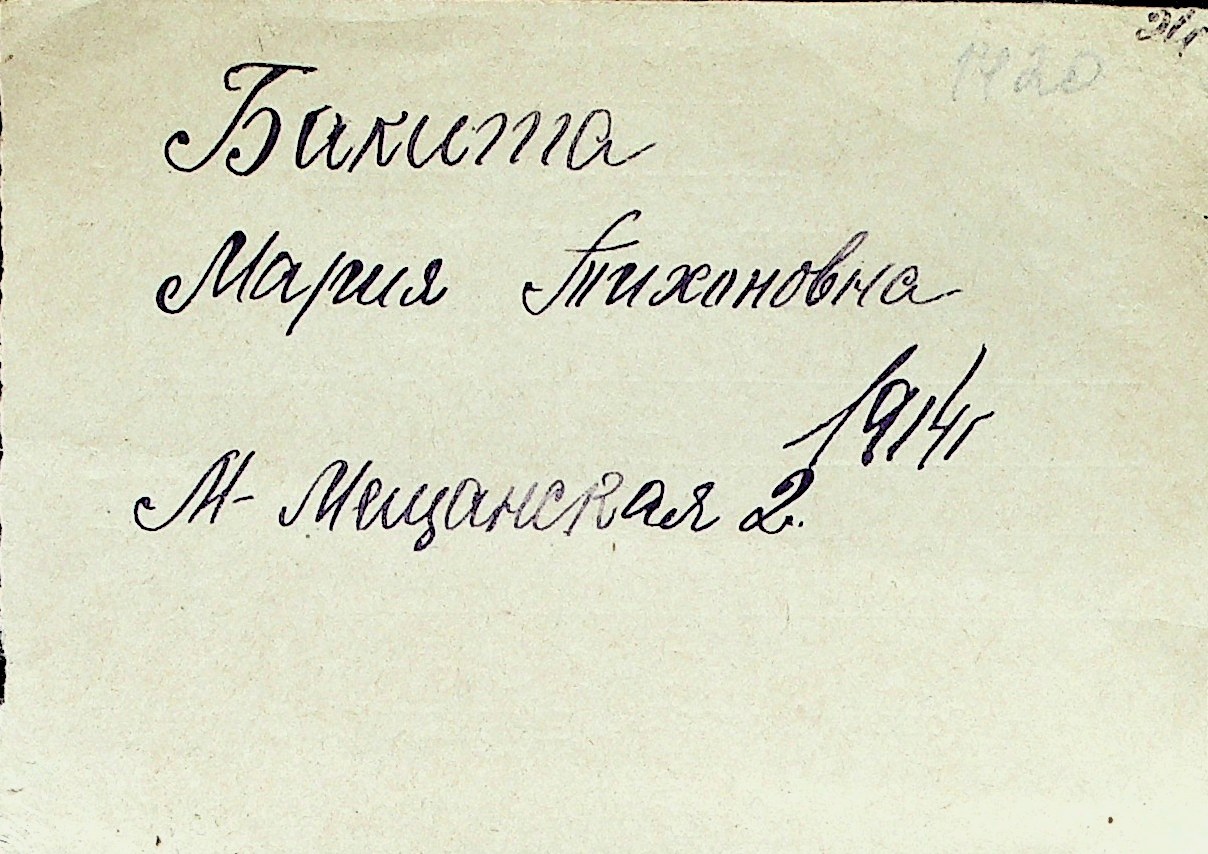 1420
Бакита
Мария Тихоновна
1914г
М-Мещанская 2.